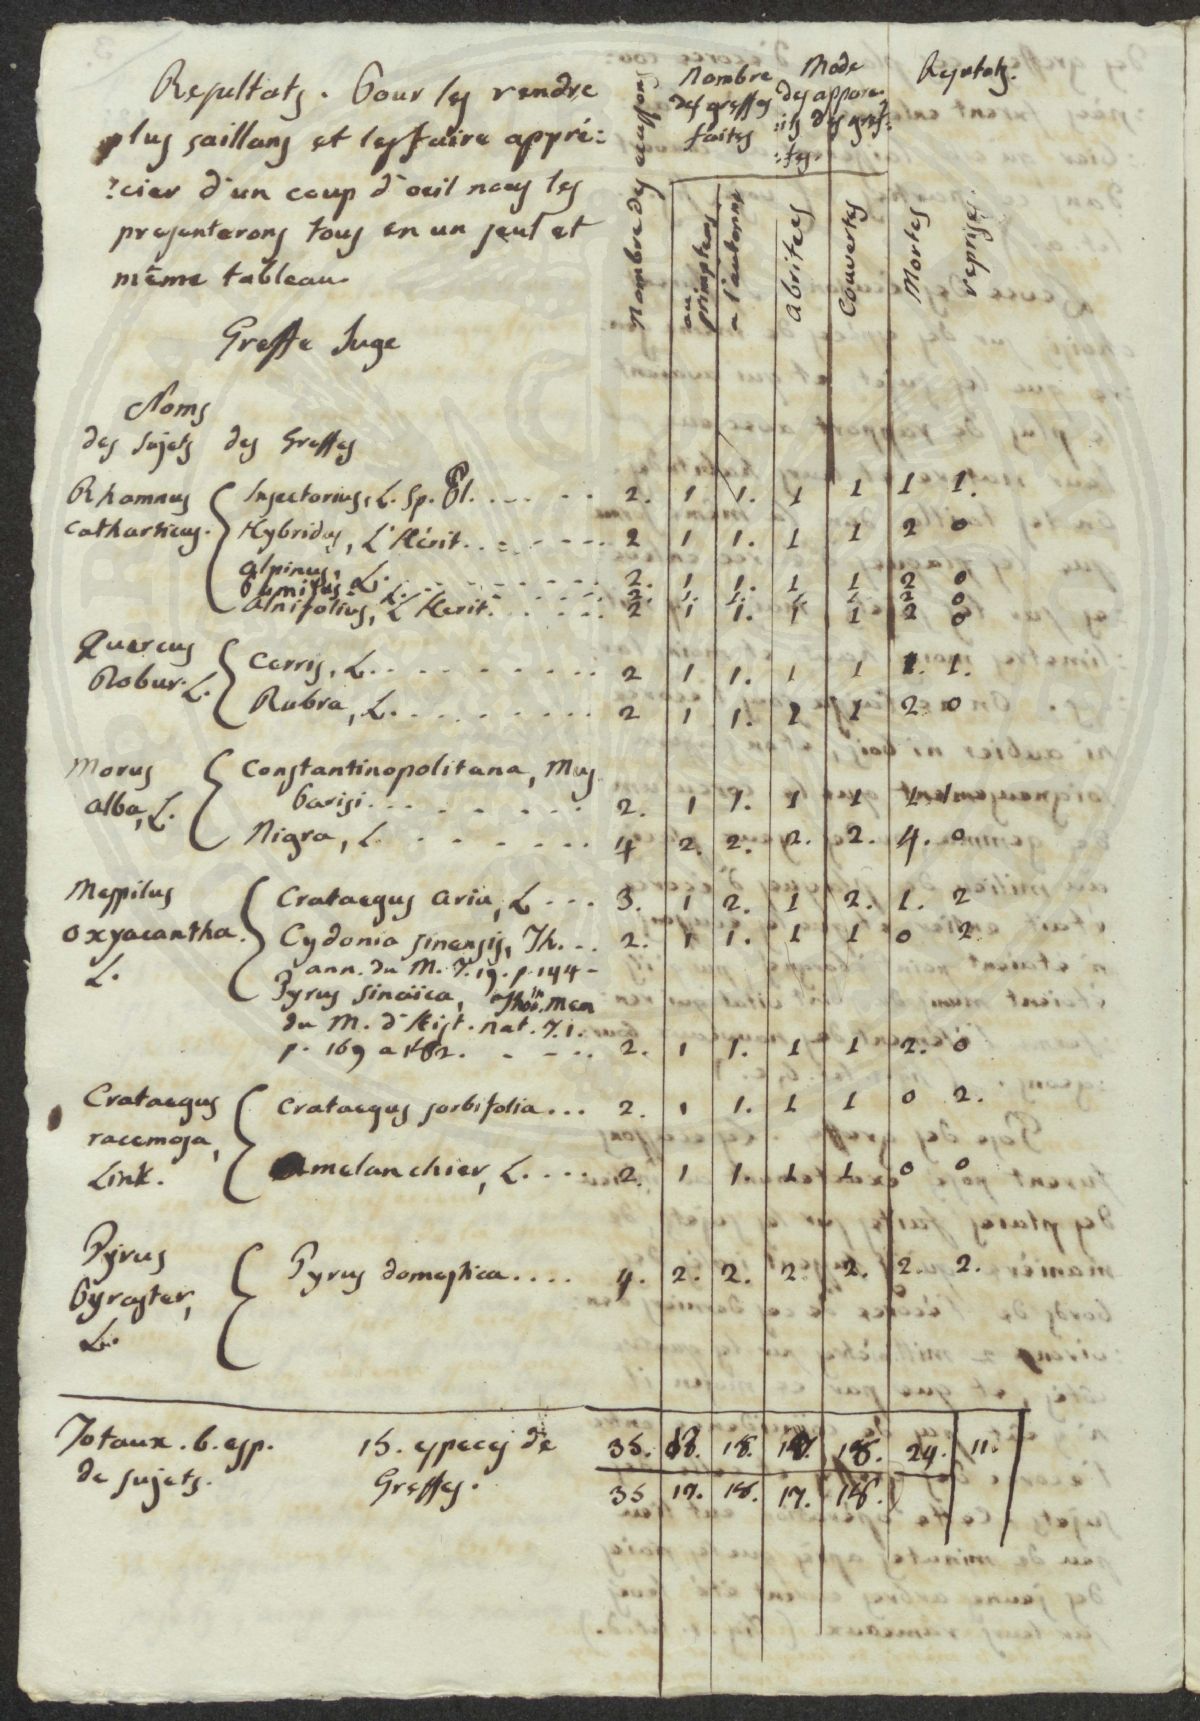 Resultats. Pour les rendre
plus saillans et les faire appré=
=cier d'un coup d'oeil nous les
presenterons tous en un seul et
même tableau.
Greffe Juge
Noms
des sujets des Greffes
Nombre des ecussons
Nombre des greffes faites
au primptems
a l'automne
Mode des appare=ils des gref=fes.
abritees
Couvertes
Resultats.
Mortes
reprises.
Rhamnus catharticus.
Infectorius, L. Sp. Pl. 2. 1 1. 1 1 1 1.
Hybridus, L'Hérit. 2 1 1. 1 1 2 0
alpinus, L. 2. 1 1. 1 1 2 0
Pumilus L. 2. 1. 1. 1 1 2 0
alnifolius, L'Herit. 2 1 1. 1 1 2 0
Quercus Robur. L.
Cerris, L. 2 1 1. 1 1 1. 1.
Rubra, L. 2 1 1. 1 1 2. 0
Morus alba, L.
Constantinopolitana, Mus.
Parisi. 2. 1 1. 1 1 1. 1
Nigra, L. 4 2. 2. 2. 2. 4. 0
Mespilus oxyacantha. L.
Crataegus aria, L 3. 1 2. 1 2. 1. 2
Cydonia sinensis, Th. 2. 1 1. 1 1 0 2.
ann. du M. T. 19. p. 144 -
Pyrus sinaïca, Thoin. Mem
du M. d'Hist. nat. T. 1.
p. 169 a 182. 2. 1 1. 1 1 2. 0
Crataegus racemosa, Link.
Crataegus sorbifolia... 2. 1 1. 1 1 0 2.
amelanchier, L. 2. 1 1. 1 1. 0 0
Pyrus Pyraster, L.
Pyrus domestica.... 4. 2. 2. 2. 2. 2. 2.
Totaux. 6. esp. 15. especes de 35. 18. 18. 24. 11.
de sujets. Greffes. 35 17. 18. 17. 18.